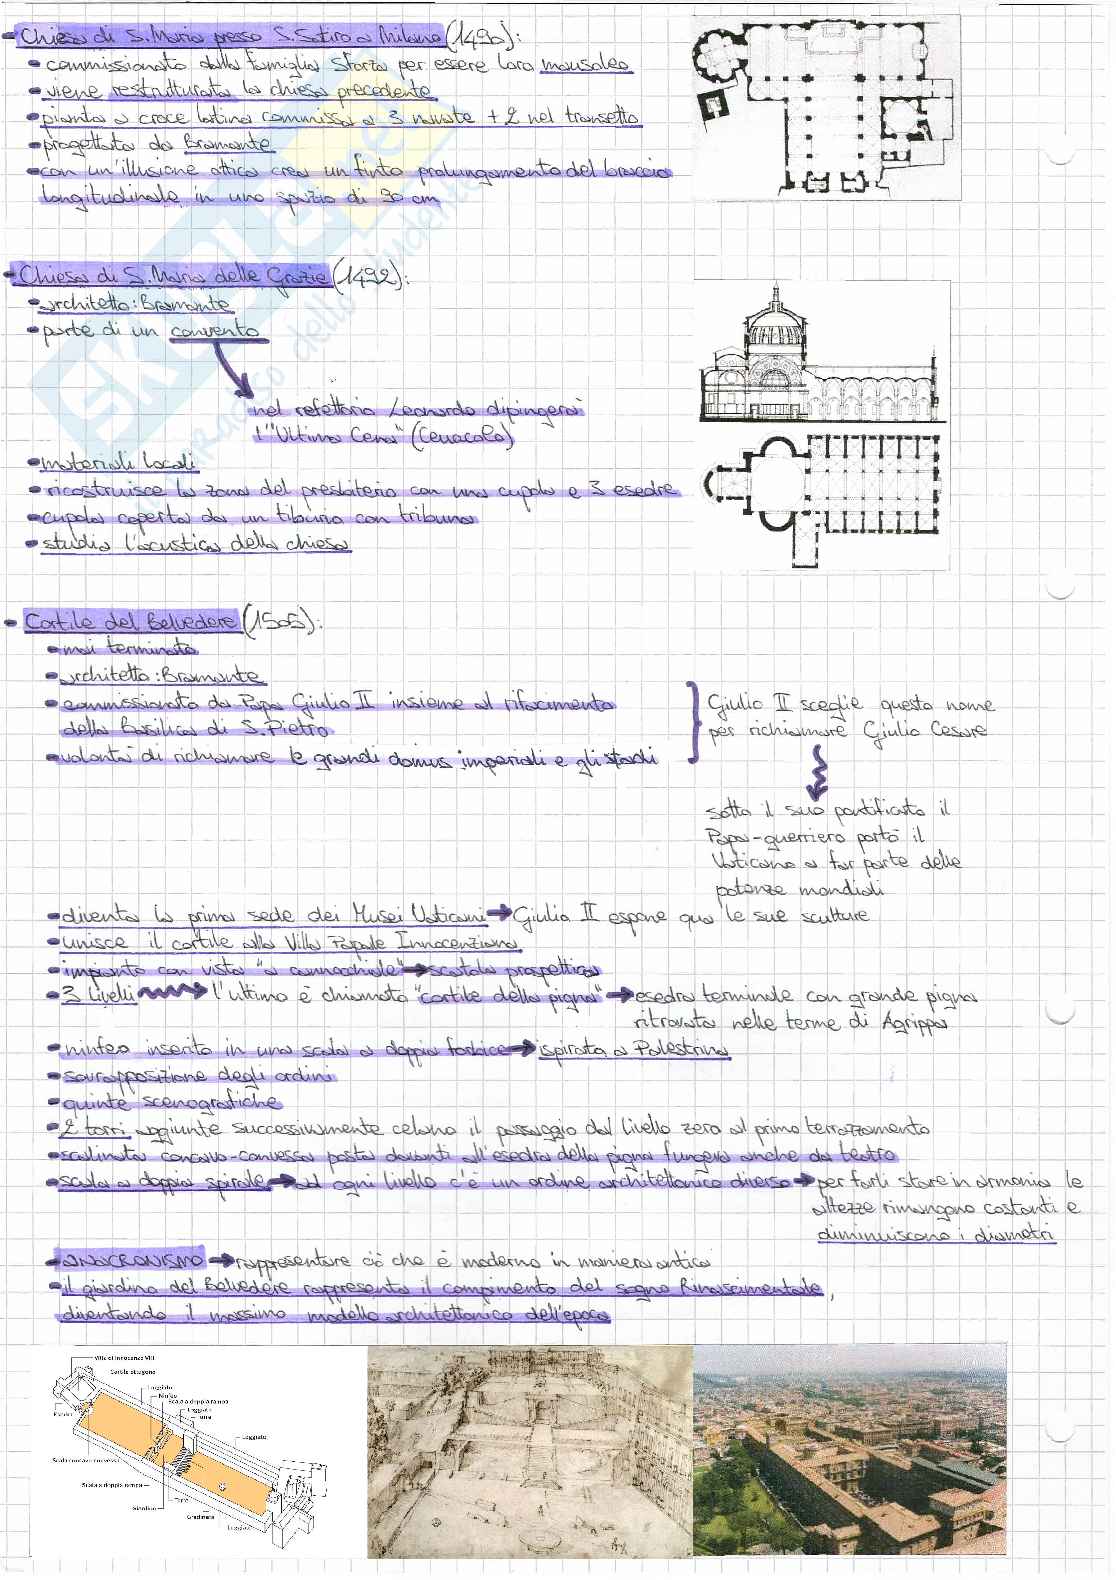 - Chiesa di S. Maria presso S. Satiro a Milano (1490):
• commissionata dalla famiglia Sforza per essere loro mausoleo
• viene restrutturata la chiesa precedente
• pianta a croce latina commissa a 3 navate + 2 nel transetto
• progettata da Bramante
• con un'illusione ottica crea un finto prolungamento del braccio
longitudinale in uno spazio di 90 cm
- Chiesa di S. Maria delle Grazie (1492):
• architetto: Bramante
• parte di un convento
nel refettorio Leonardo dipingerà
l'"Ultima Cena" (Cenacolo)
• materiali locali
• ricostruisce la zona del presbiterio con una cupola e 3 esedre
• cupola coperta da un tiburio con tribuna
• studia l'acustica della chiesa
- Cortile del Belvedere (1505):
• mai terminato
• architetto: Bramante
• commissionato da Papa Giulio II insieme al rifacimento
della Basilica di S. Pietro
• volontà di richiamare le grandi domus imperiali e gli stadi
Giulio II sceglie questo nome
per richiamare Giulio Cesare
sotto il suo pontificato il
Papa-guerriero portò il
Vaticano a far parte delle
potenze mondiali
• diventa la prima sede dei Musei Vaticani → Giulio II espone qua le sue sculture
• unisce il cortile alla Villa Papale Innocenziana
• impianto con vista "a cannocchiale" → scatola prospettica
• 3 livelli → l'ultimo è chiamato "cortile della pigna" → esedra terminale con grande pigna
ritrovata nelle terme di Agrippa
• ninfeo inserito in una scala a doppia forbice → ispirata a Palestrina
• sovrapposizione degli ordini
• quinte scenografiche
• 2 torri aggiunte successivamente celano il passaggio dal livello zero al primo terrazzamento
• scalinata concavo-convessa posta davanti all'esedra della pigna fungeva anche da teatro
• scala a doppia spirale → ad ogni livello c'è un ordine architettonico diverso → per farli stare in armonia le
altezze rimangono costanti e
diminuiscono i diametri
• ANACRONISMO → rappresentare ciò che è moderno in maniera antica
• il giardino del Belvedere rappresenta il compimento del sogno Rinascimentale,
diventando il massimo modello architettonico dell'epoca
Villa di Innocenzo VIII
Cortile ottagono
Loggiato
Ninfeo
Scala a doppia rampa
Loggiato
Torre
Loggiato
Scala concavo convessa
Scala a doppia rampa
Giardino
Torre
Gradinata
Loggiato